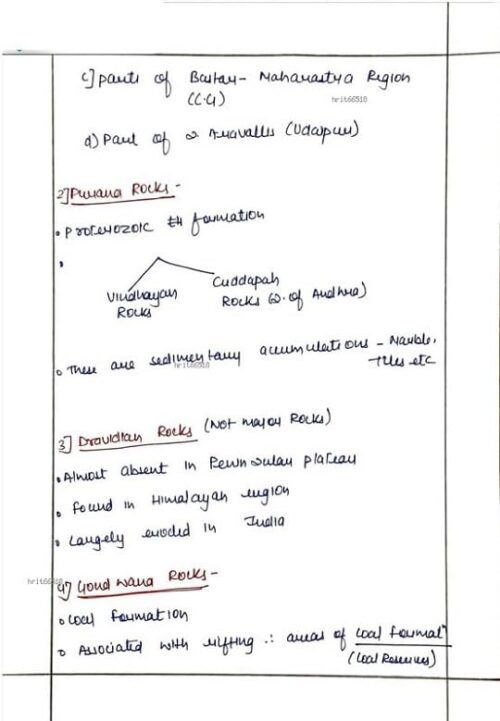 c] parts of Bastar - Maharastra Region
(C.G)
hrit66518
d) Part of Aravallis (Udaipur)
2] Purana Rocks -
• Proterozoic formation
•
Vindhayan
Rocks
Cuddapah
Rocks (D. of Andhra)
• These are sedimentary accumulations - Marble,
Tiles etc
hrit66518
3] Dravidian Rocks (Not major Rocks)
• Almost absent in Peninsular plateau
• found in Himalayan region
• Largely eroded in India
hrit66518
4] Gondwana Rocks -
• Coal formation
• Associated with rifting ∴ areas of coal formatⁿ
(Coal Reserves)